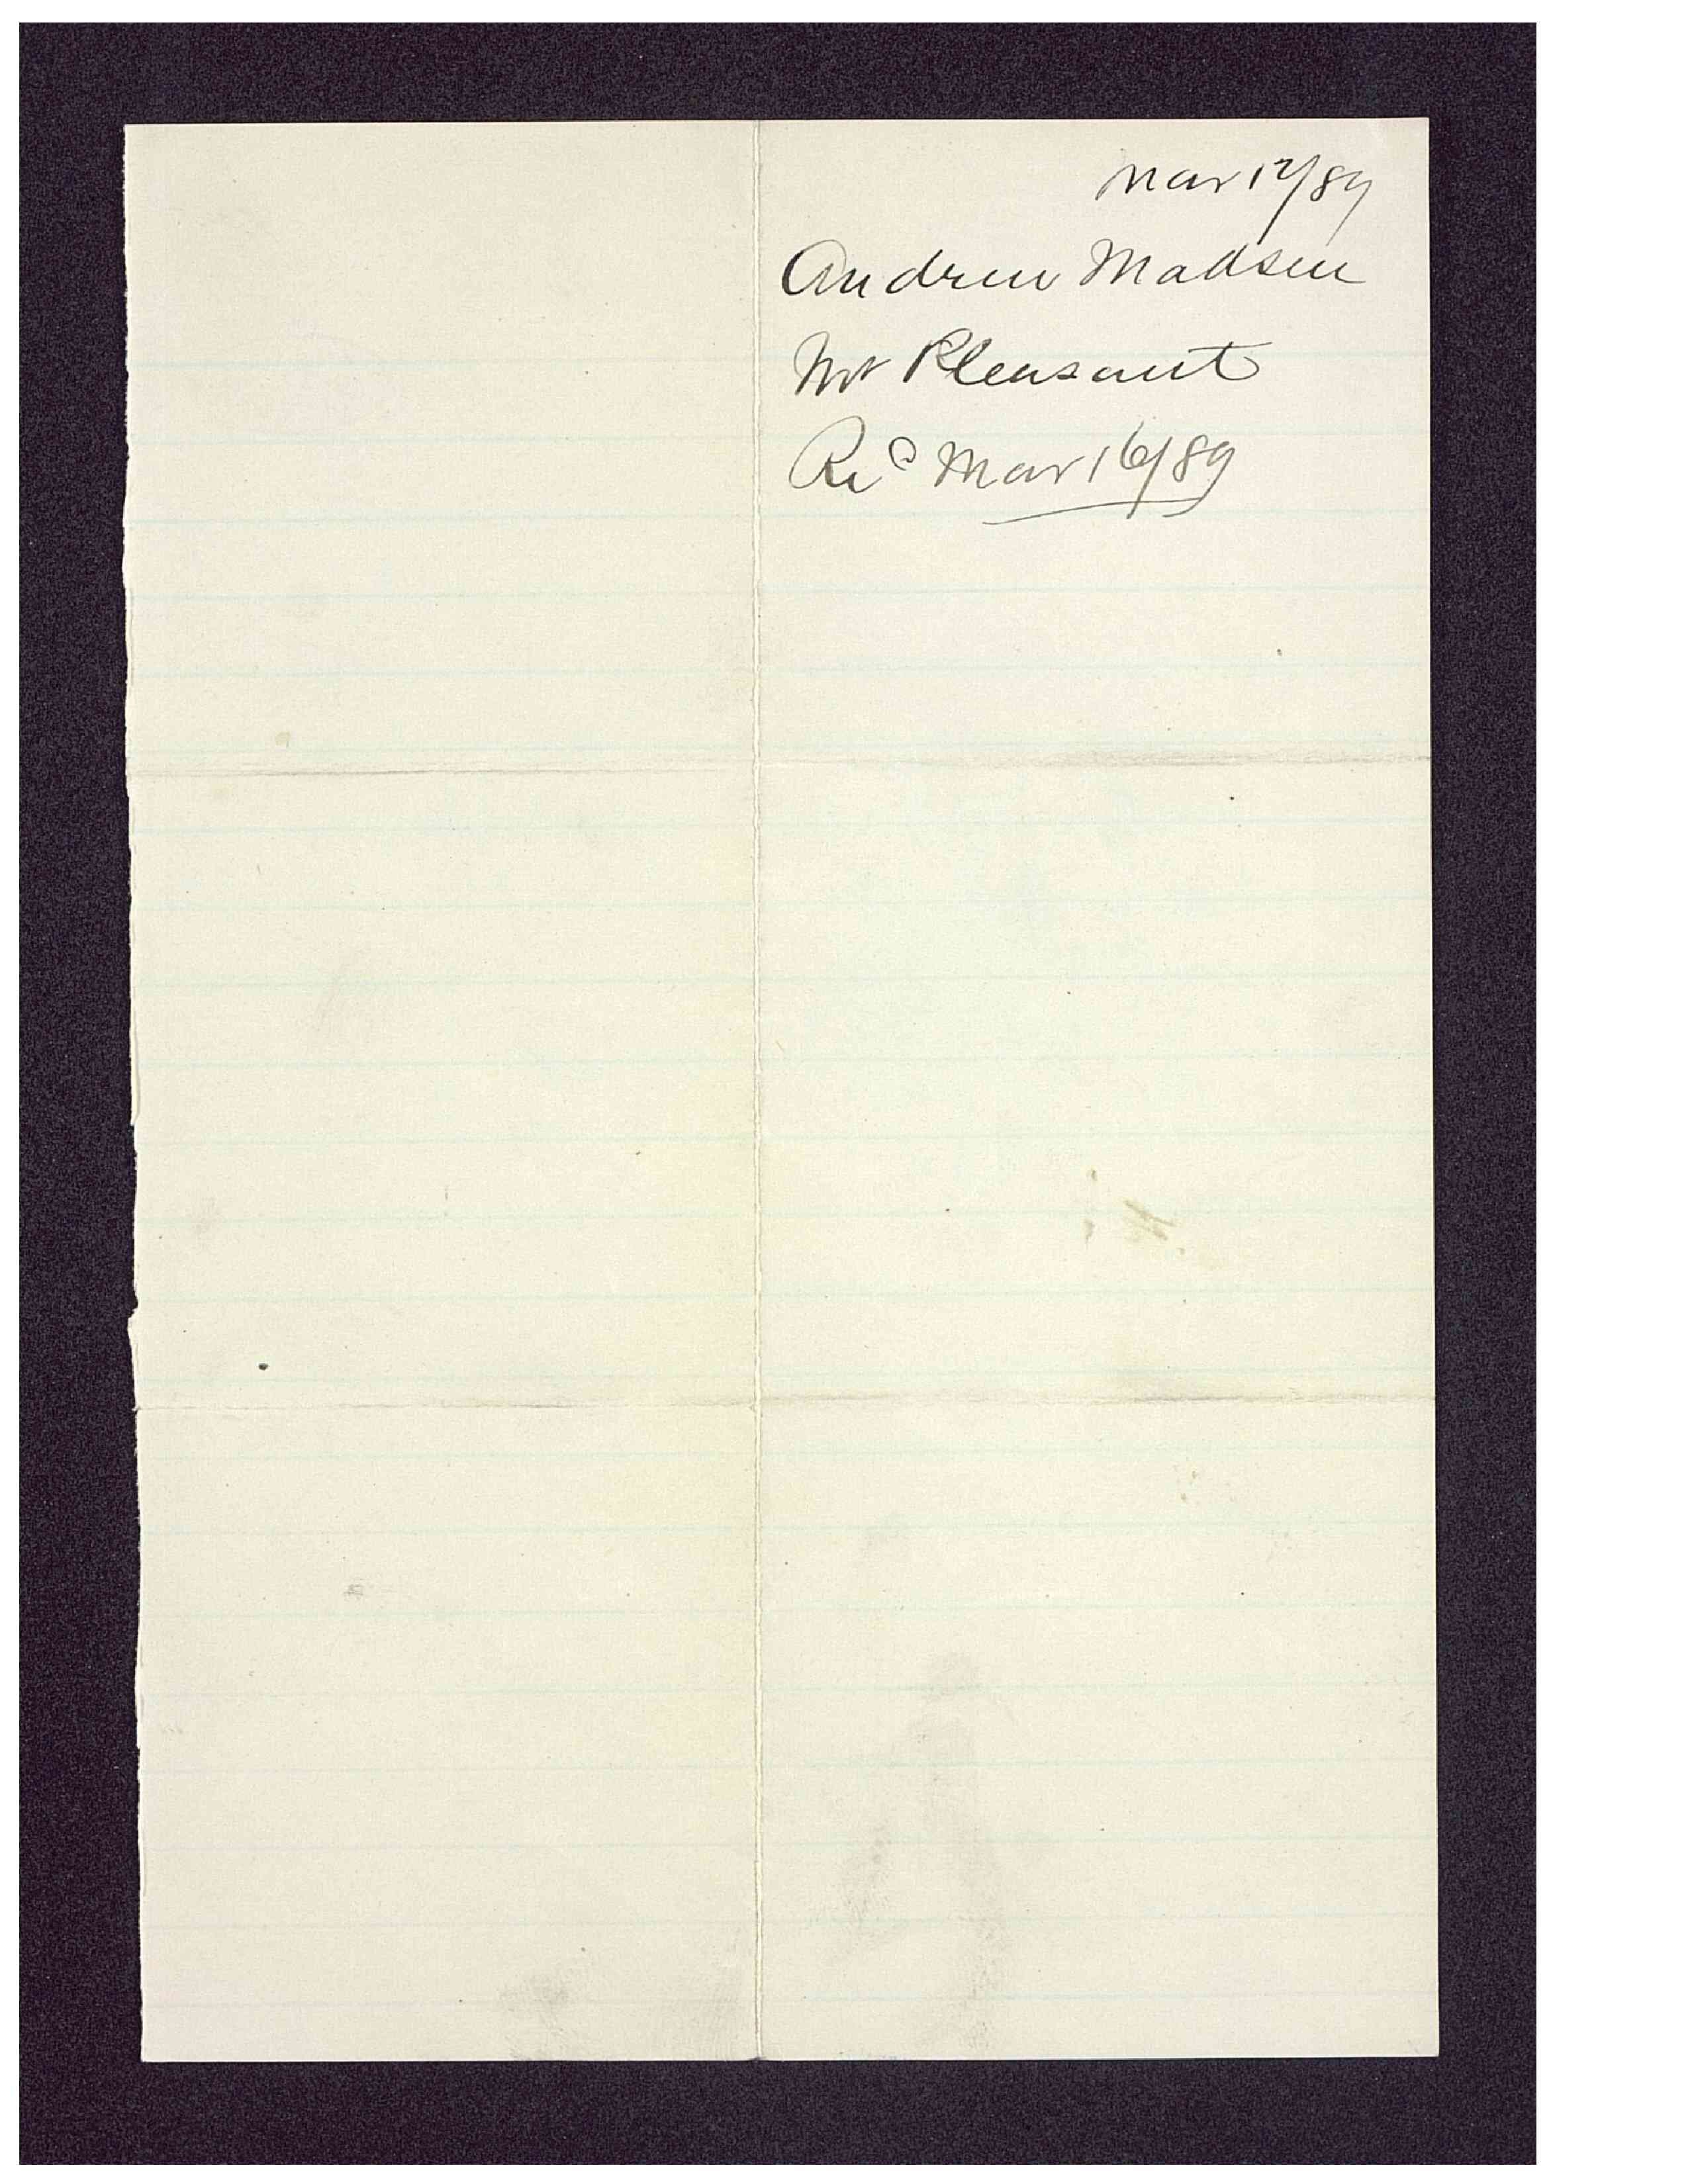 Mar 12/89
Andrew Madsen
Mt Pleasant
Rec Mar 16/89